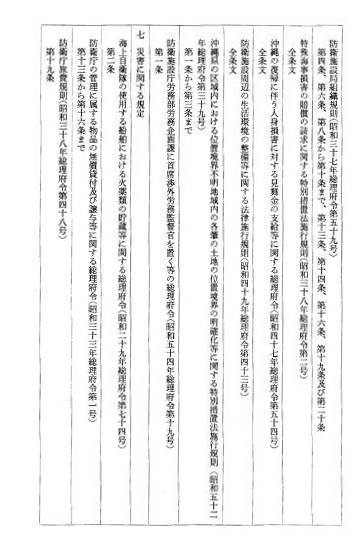 防衛施設局組織規則(昭和三十七年総理府令第五十九号)
第四条、第六条、第八条から第十条まで、第十三条、第十四条、第十六条、第十九条及び第二十条
特殊海事損害の賠償の請求に関する特別措置法施行規則(昭和三十八年総理府令第二号)
全条文
沖縄の復帰に伴う人身損害に対する見舞金の支給等に関する総理府令(昭和四十七年総理府令第五十四号)
全条文
防衛施設周辺の生活環境の整備等に関する法律施行規則(昭和四十九年総理府令第四十三号)
全条文
沖縄県の区域内における位置境界不明地域内の各筆の土地の位置境界の明確化等に関する特別措置法施行規則(昭和五十二
年総理府令第三十九号)
第一条から第三条まで
防衛施設庁労務部労務企画課に首席渉外労務監督官を置く等の総理府令(昭和五十四年総理府令第十九号)
第一条
七 災害に関する規定
海上自衛隊の使用する船舶における火薬類の貯蔵等に関する総理府令(昭和二十九年総理府令第七十四号)
第二条
防衛庁の管理に属する物品の無償貸付及び譲与等に関する総理府令(昭和三十三年総理府令第一号)
第十三条から第十六条まで
防衛庁旅費規則(昭和三十八年総理府令第四十八号)
第十九条